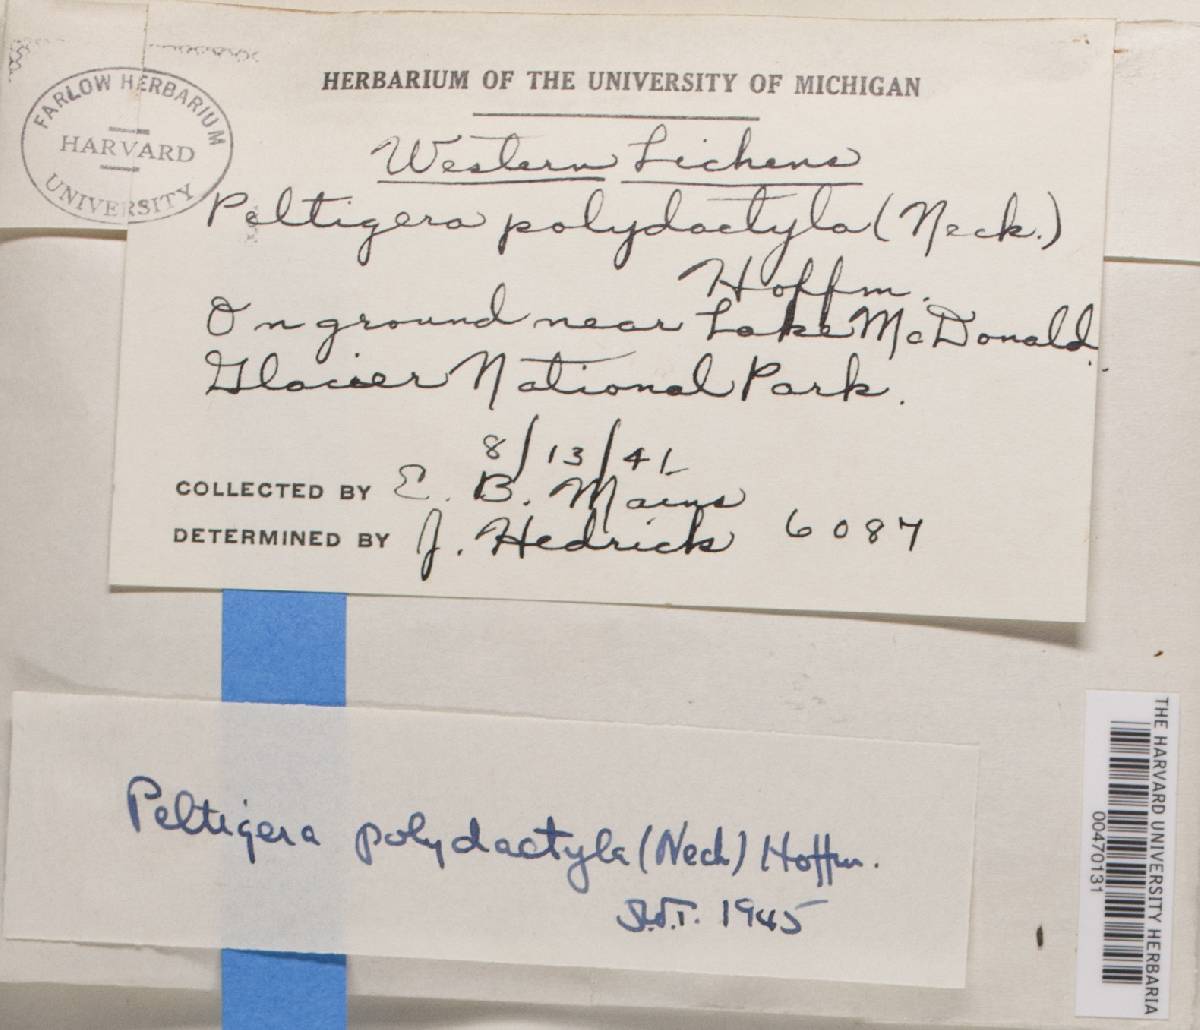 HERBARIUM OF THE UNIVERSITY OF MICHIGAN
FARLOW HERBARIUM
HARVARD
UNIVERSITY
Western Lichens
Peltigera polydactyla (Neck.)
Hoffm.
On ground near Lake McDonald.
Glacier National Park.
8/13/41
COLLECTED BY E. B. Mains
DETERMINED BY J. Hedrick 6087
Peltigera polydactyla (Neck) Hoffm.
1945
THE HARVARD UNIVERSITY HERBARIA
00470131